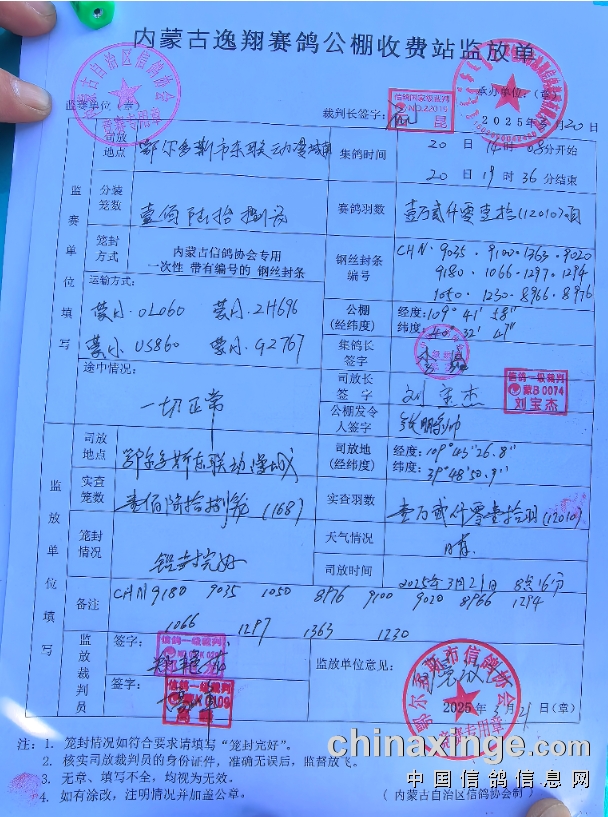 内蒙古逸翔赛鸽公棚收费站监放单
监赛单位(章)
裁判长签字:
承办单位:(章)
2025年3月20日
监赛单位填写
司放地点
鄂尔多斯市东联动漫城
集鸽时间
20日14时08分开始
20日19时36分结束
分装笼数
壹佰陆拾捌
赛鸽羽数
壹万贰仟零壹拾(12010)羽
笼封方式
内蒙古信鸽协会专用
一次性 带有编号的 钢丝封条
钢丝封条编号
CHN·9035·9100·1363·9020
9180·1066·1297·1294
1050·1230·8966·8976
运输方式:
蒙A·0L060 蒙A·2H696
蒙A·US860 蒙A·G2767
公棚(经纬度)
经度:109°41′58″
纬度:40°32′47″
集鸽长签字
途中情况:
一切正常
司放长签字
刘宝杰
信鸽一级裁判
蒙B0074
刘宝杰
公棚发令人签字
监放单位填写
司放地点
鄂尔多斯东联动漫城
司放地(经纬度)
经度:109°45′26.8″
纬度:39°48′50.9″
实查笼数
壹佰陆拾捌 (168)
实查羽数
壹万贰仟零壹拾羽(12010)
笼封情况
铅封完好
天气情况
晴.
司放时间
2025年3月21日 8点16分
备注
CHN 9180 9035 1050 8976 9100 9020 8966 1294
1066 1297 1363 1230
监放裁判员
签字:
信鸽一级裁判
签字:
信鸽一级裁判
监放单位意见:
鄂尔多斯市信鸽协会
2025年3月21日(章)
注:1. 笼封情况如符合要求请填写“笼封完好”。
2. 核实司放裁判员的身份证件,准确无误后,监督放飞。
3. 无章、填写不全,均视为无效。
4. 如有涂改,注明情况并加盖公章。
(内蒙古自治区信鸽协会制)
chinaxinge.com
中国信鸽信息网